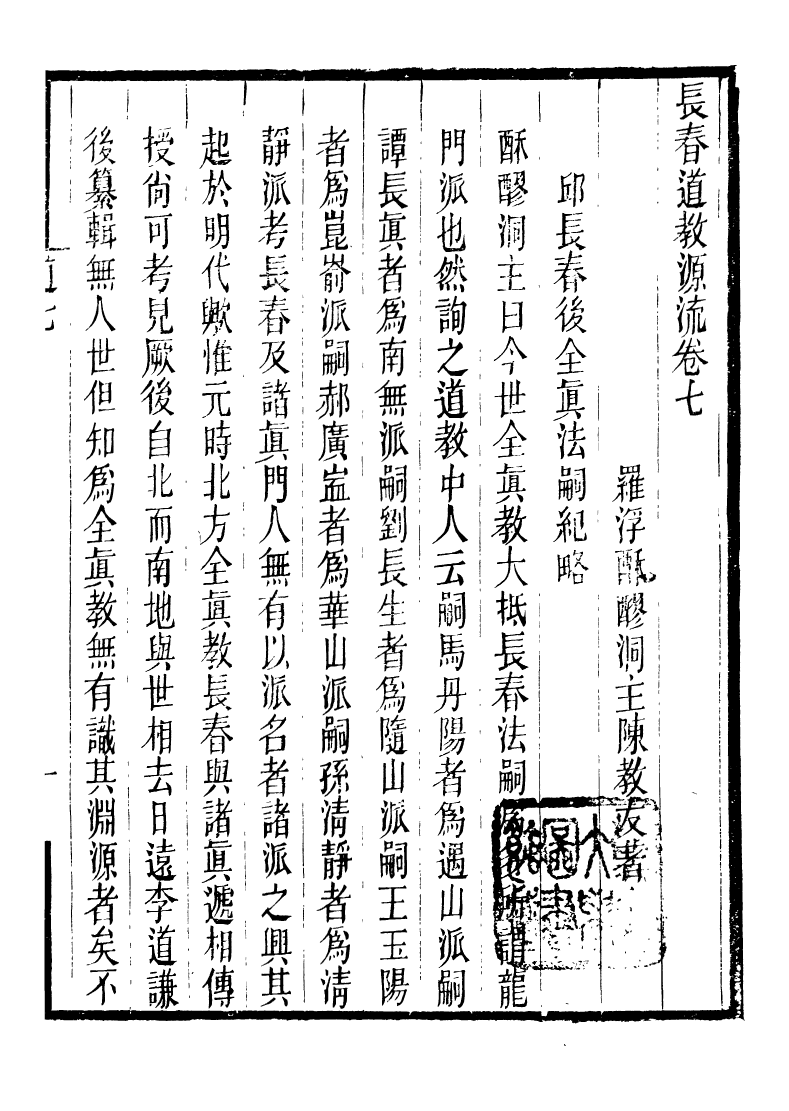 長春道教源流卷七
羅浮酥醪洞主陳教友著
邱長春後全眞法嗣紀略
酥醪洞主曰今世全眞教大抵長春法嗣爲多所謂龍
門派也然詢之道教中人云嗣馬丹陽者爲遇山派嗣
譚長眞者爲南無派嗣劉長生者爲隨山派嗣王玉陽
者爲崑崳派嗣郝廣寍者爲華山派嗣孫清靜者爲清
靜派考長春及諸眞門人無有以派名者諸派之興其
起於明代歟惟元時北方全眞教長春與諸眞遞相傳
授尙可考見厥後自北而南地與世相去日遠李道謙
後纂輯無人世但知爲全眞教無有識其淵源者矣不
道七
一